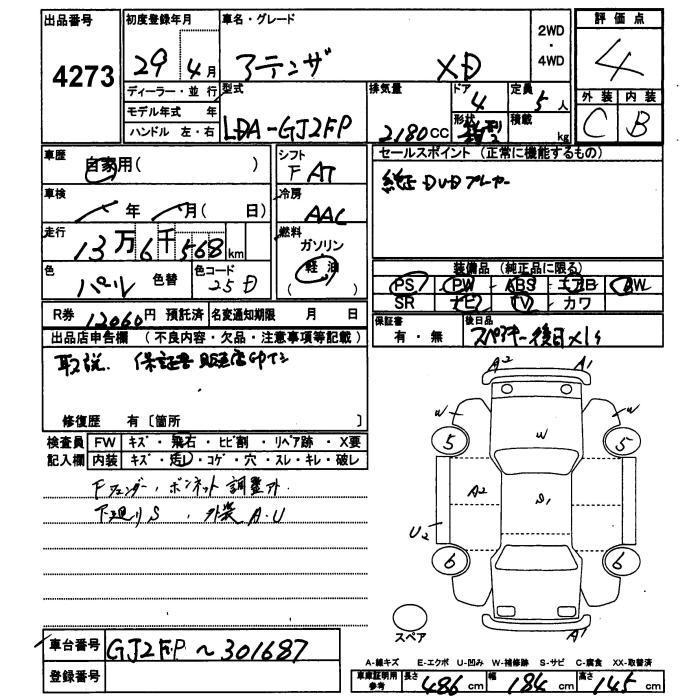 出品番号 初度登録年月 車名・グレード 2WD・4WD 評価点
4273 29年4月 アテンザ XD 4
ディーラー・並行 型式 排気量 ドア 定員 外装 内装
モデル年式 年 4 5人 C B
ハンドル 左・右 LDA-GJ2FP 2180CC 形状 積載 kg
車歴 自家用( ) シフト FAT セールスポイント (正常に機能するもの)
車検 年 月( 日) 冷房 AAC 純正DVDプレーヤー
走行 13万6千568km 燃料 ガソリン 軽油 ( )
色 パール 色替 色コード 25D
装備品 (純正品に限る)
PS・PW・ABS・エアB・AW
SR・ナビ・TV・カワ
R券 12060円 預託済 名変通知期限 月 日
保証書 有・無 後日品 スペアキー後日×1ケ
出品店申告欄 (不良内容・欠品・注意事項等記載)
取説、保証書
修復歴 有〔箇所 〕
検査員 FW キズ・飛石・ヒビ割・リペア跡・X要
記入欄 内装 キズ・汚レ・コゲ・穴・スレ・キレ・破レ
Fフェンダー、ボンネット調整外
下廻りS、外装A.U
A2 A1
W W
5 W 5
A2 S1
U2
6 6
スペア A1
車台番号 GJ2FP~301687
登録番号
A-線キズ E-エクボ U-凹み W-補修跡 S-サビ C-腐食 XX-取替済
車庫証明用参考 長さ 486cm 幅 184cm 高さ 145cm